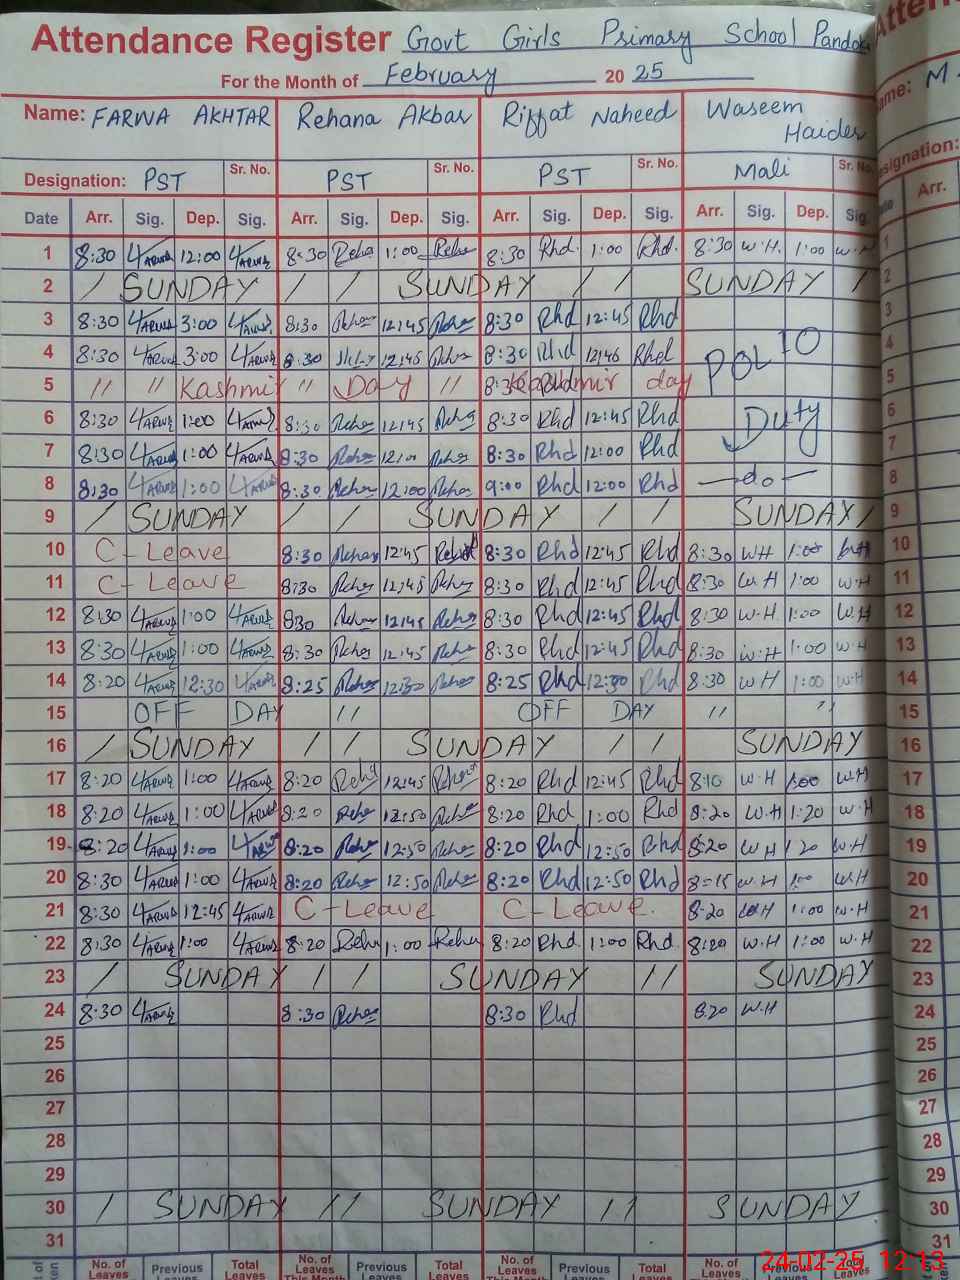 Attendance Register Govt Girls Primary School Pandok
For the Month of February 20 25
Name: FARWA AKHTAR Rehana Akbar Riffat Naheed Waseem Haider
Designation: PST Sr. No. PST Sr. No. PST Sr. No. Mali Sr. No.
Date Arr. Sig. Dep. Sig. Arr. Sig. Dep. Sig. Arr. Sig. Dep. Sig. Arr. Sig. Dep. Sig.
1 8:30 Farwa 12:00 Farwa 8:30 Reha 1:00 Reha 8:30 Rhd. 1:00 Rhd. 8:30 W.H. 1:00 W.H
2 / SUNDAY / / SUNDAY / / SUNDAY / 2
3 8:30 Farwa 3:00 Farwa 8:30 Rehas 12:45 Rehas 8:30 Rhd 12:45 Rhd 3
4 8:30 Farwa 3:00 Farwa 8:30 12:45 Rehas 8:30 Rhd 12:45 Rhd POLIO 4
5 " " Kashmir " Day " 8:3 Kashmir day 5
6 8:30 Farwa 1:00 Farwa 8:30 Rehas 12:45 Rehas 8:30 Rhd 12:45 Rhd Duty 6
7 8:30 Farwa 1:00 Farwa 8:30 Rehas 12:00 Rehas 8:30 Rhd 12:00 Rhd 7
8 8:30 Farwa 1:00 Farwa 8:30 Rehas 12:00 Rehas 9:00 Rhd 12:00 Rhd —do— 8
9 / SUNDAY / / SUNDAY / / SUNDAY / 9
10 C-Leave 8:30 Rehas 12:45 8:30 Rhd 12:45 Rhd 8:30 WH 1:00 WH 10
11 C-Leave 8:30 Rehas 12:45 Rehas 8:30 Rhd 12:45 Rhd 8:30 W.H 1:00 W.H 11
12 8:30 Farwa 1:00 Farwa 830 Rehas 12:45 Rehas 8:30 Rhd 12:45 Rhd 8:30 W.H 1:00 W.H 12
13 8:30 Farwa 1:00 Farwa 8:30 Rehas 12:45 Rehas 8:30 Rhd 12:45 Rhd 8:30 W.H 1:00 W.H 13
14 8:20 Farwa 12:30 Farwa 8:25 Rehas 12:30 Rehas 8:25 Rhd 12:30 Rhd 8:30 W.H 1:00 W.H 14
15 OFF DAY " OFF DAY " " 15
16 / SUNDAY / / SUNDAY / / SUNDAY 16
17 8:20 Farwa 1:00 Farwa 8:20 Reha 12:45 Rehas 8:20 Rhd 12:45 Rhd 8:10 W.H 1:00 W.H 17
18 8:20 Farwa 1:00 Farwa 8:20 Rehas 12:50 Rehas 8:20 Rhd 1:00 Rhd 8:20 W.H 1:20 W.H 18
19 8:20 Farwa 1:00 Farwa 8:20 Rehas 12:50 Rehas 8:20 Rhd 12:50 Rhd 8:20 W.H 1 20 W.H 19
20 8:30 Farwa 1:00 Farwa 8:20 Rehas 12:50 Rehas 8:20 Rhd 12:50 Rhd 8:15 W.H W.H 20
21 8:30 Farwa 12:45 Farwa C-Leave C-Leave. 8:20 W.H 1:00 W.H 21
22 8:30 Farwa 1:00 Farwa 8:20 Reha 1:00 Reha 8:20 Rhd. 1:00 Rhd. 8:20 W.H 1:00 W.H 22
23 / SUNDAY / / SUNDAY / / SUNDAY 23
24 8:30 Farwa 8:30 Rehas 8:30 Rhd 8:20 W.H 24
25 25
26 26
27 27
28 28
29 29
30 / SUNDAY / / SUNDAY / / SUNDAY 30
31 31
No. of Leaves This Month Previous Leaves Total Leaves No. of Leaves This Month Previous Leaves Total Leaves No. of Leaves Previous Leaves Total Leaves
24-02-25 12:13